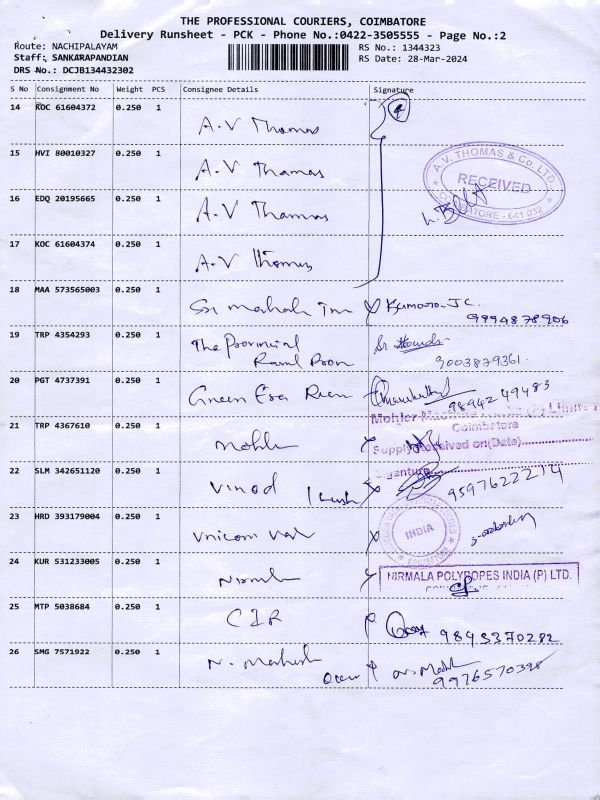 THE PROFESSIONAL COURIERS, COIMBATORE
Delivery Runsheet - PCK - Phone No.:0422-3505555 - Page No.:2
Route: NACHIPALAYAM RS No.: 1344323
Staff: SANKARAPANDIAN RS Date: 28-Mar-2024
DRS No.: DCJB134432302
S No Consignment No Weight PCS Consignee Details Signature
14 KOC 61604372 0.250 1 A.V Thomas
15 HVI 80010327 0.250 1 A.V Thomas
A.V. THOMAS & Co. LTD.
RECEIVED
COIMBATORE - 641 032
16 EDQ 20195665 0.250 1 A.V Thomas
17 KOC 61604374 0.250 1 A.V Thomas
18 MAA 573565003 0.250 1 Sri Mahal Inn
9994878906
19 TRP 4354293 0.250 1 The Provincial
9003879361
20 PGT 4737391 0.250 1 Green Era
9894249483
Coimbatore
Supply Received on(Date)
21 TRP 4367610 0.250 1 Mohler
22 SLM 342651120 0.250 1 Vinod
9597622214
23 HRD 393179004 0.250 1 Unicom
INDIA
24 KUR 531233005 0.250 1
NIRMALA POLYROPES INDIA (P) LTD.
25 MTP 5038684 0.250 1 CIR
9843370282
26 SMG 7571922 0.250 1 N. Mahesh
9976570398